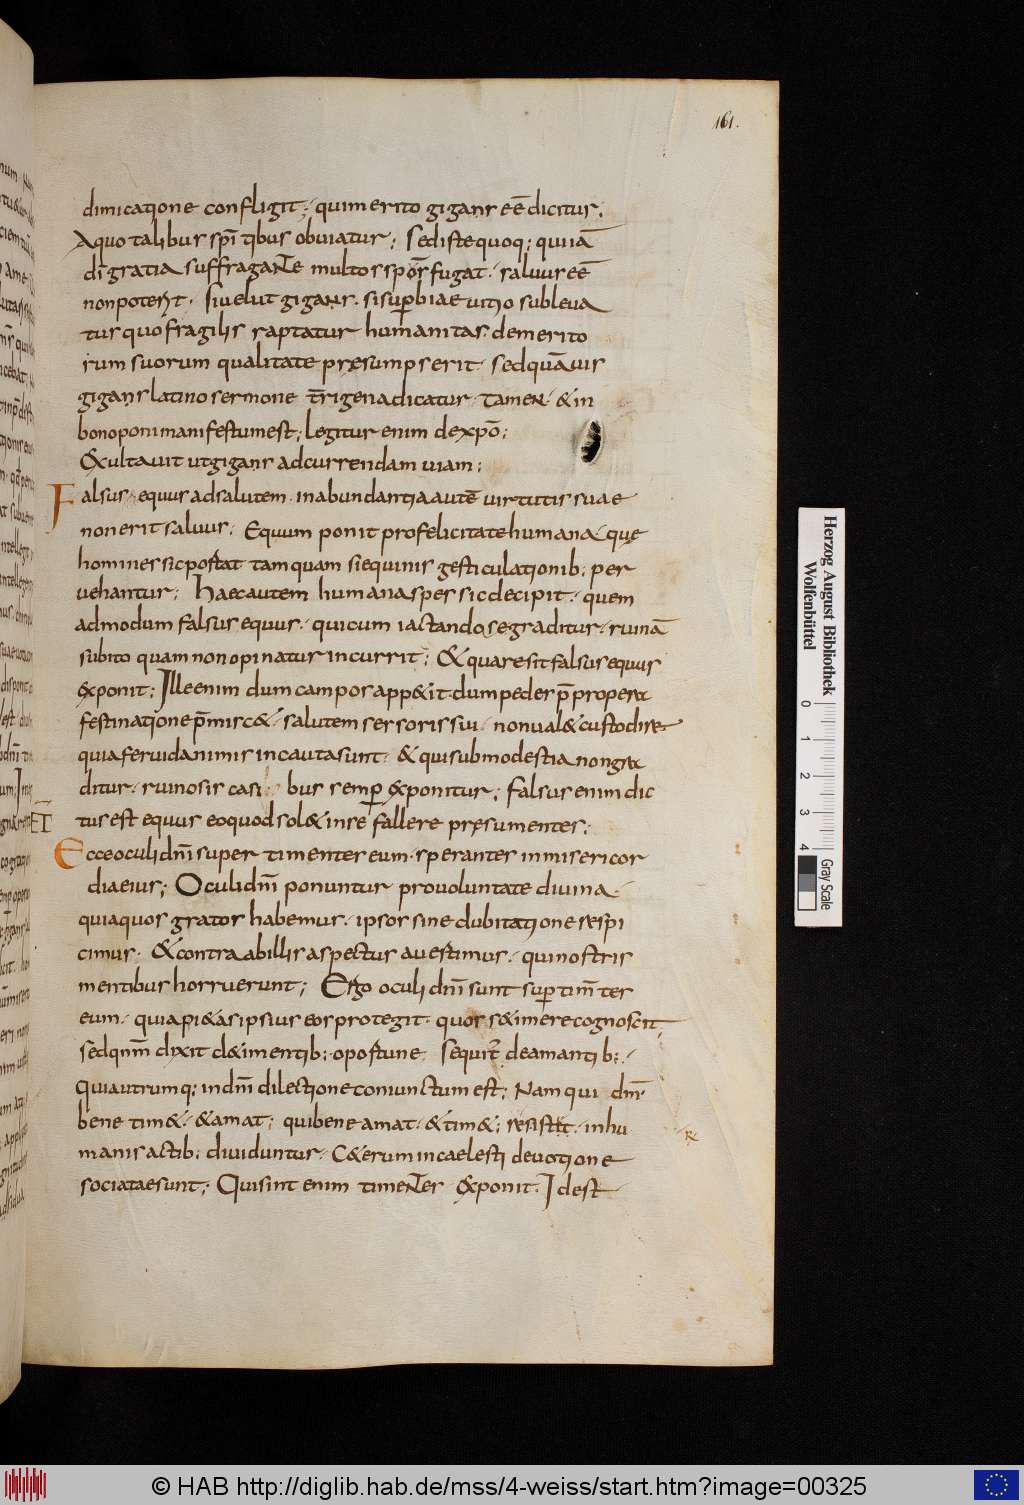 161.
dimicatione confligit; qui merito gigans eē dicitur.
A quo talibus spītibus obviatur; Sed iste quoq; qui iā
dī gratia suffragante multos spōs fugat. salvus eē
non potest. Si velut gigans. si superbiae vitio subleva
tus quo fragilis raptatur humanitas. de merito
rum suorum qualitate pręsumpserit. sed quāvis
gigans latino sermone t̄rigena dicatur. tamen. & in
bono poni manifestum est; legitur enim de xp̄o;
Exultavit ut gigans ad currendam viam;
Falsus equus ad salutem. in abundantia autē virtutis suae
non erit salvus. Equum ponit pro felicitate humana. quę
homines sic portat tamquam si equinis gesticulationib; per
vehantur; Haec autem humana spes sic decipit. quem
admodum falsus equus. qui cum iactando se graditur. ruinā
subito quam non opinatur incurrit; & quare sit falsus equus
exponit; Ille enim dum campos app&it. dum pedes p̄propera
festinatione p̄misc&. salutem sessoris sui. non val& custodire.
quia fervida nimis incauta sunt. & qui sub modestia non gra
ditur. ruinosis casibus semp̄ exponitur; falsus enim dic
tus est equus eo quod sol& in se fallere pręsumentes;
ET
Ecce oculi dn̄i super timentes eum. sperantes in misericor
dia eius; Oculi dn̄i ponuntur pro voluntate divina.
quia quos gratos habemus. ipsos sine dubitatione respi
cimus. & contra ab illis aspectus avertimus. qui nostris
mentibus horruerunt; Ergo oculi dn̄i sunt sup̄ tim̄tes
eum. quia pi&as ipsius eos protegit. quos se timere cognoscit.
sed qn̄m dixit de timentib; oportune sequit̄ de amantib;.
Quia utrumq; in dn̄i dilectione coniunctum est; Nam qui dn̄m
bene tim&. & amat; qui bene amat. & tim&; in hu
manis actib; dividuntur. C&erum in caelesti devotione
sociatae sunt; Qui sint enim timentes exponit. Id est
Herzog August Bibliothek
Wolfenbüttel
0 1 2 3 4
Gray Scale
© HAB http://diglib.hab.de/mss/4-weiss/start.htm?image=00325